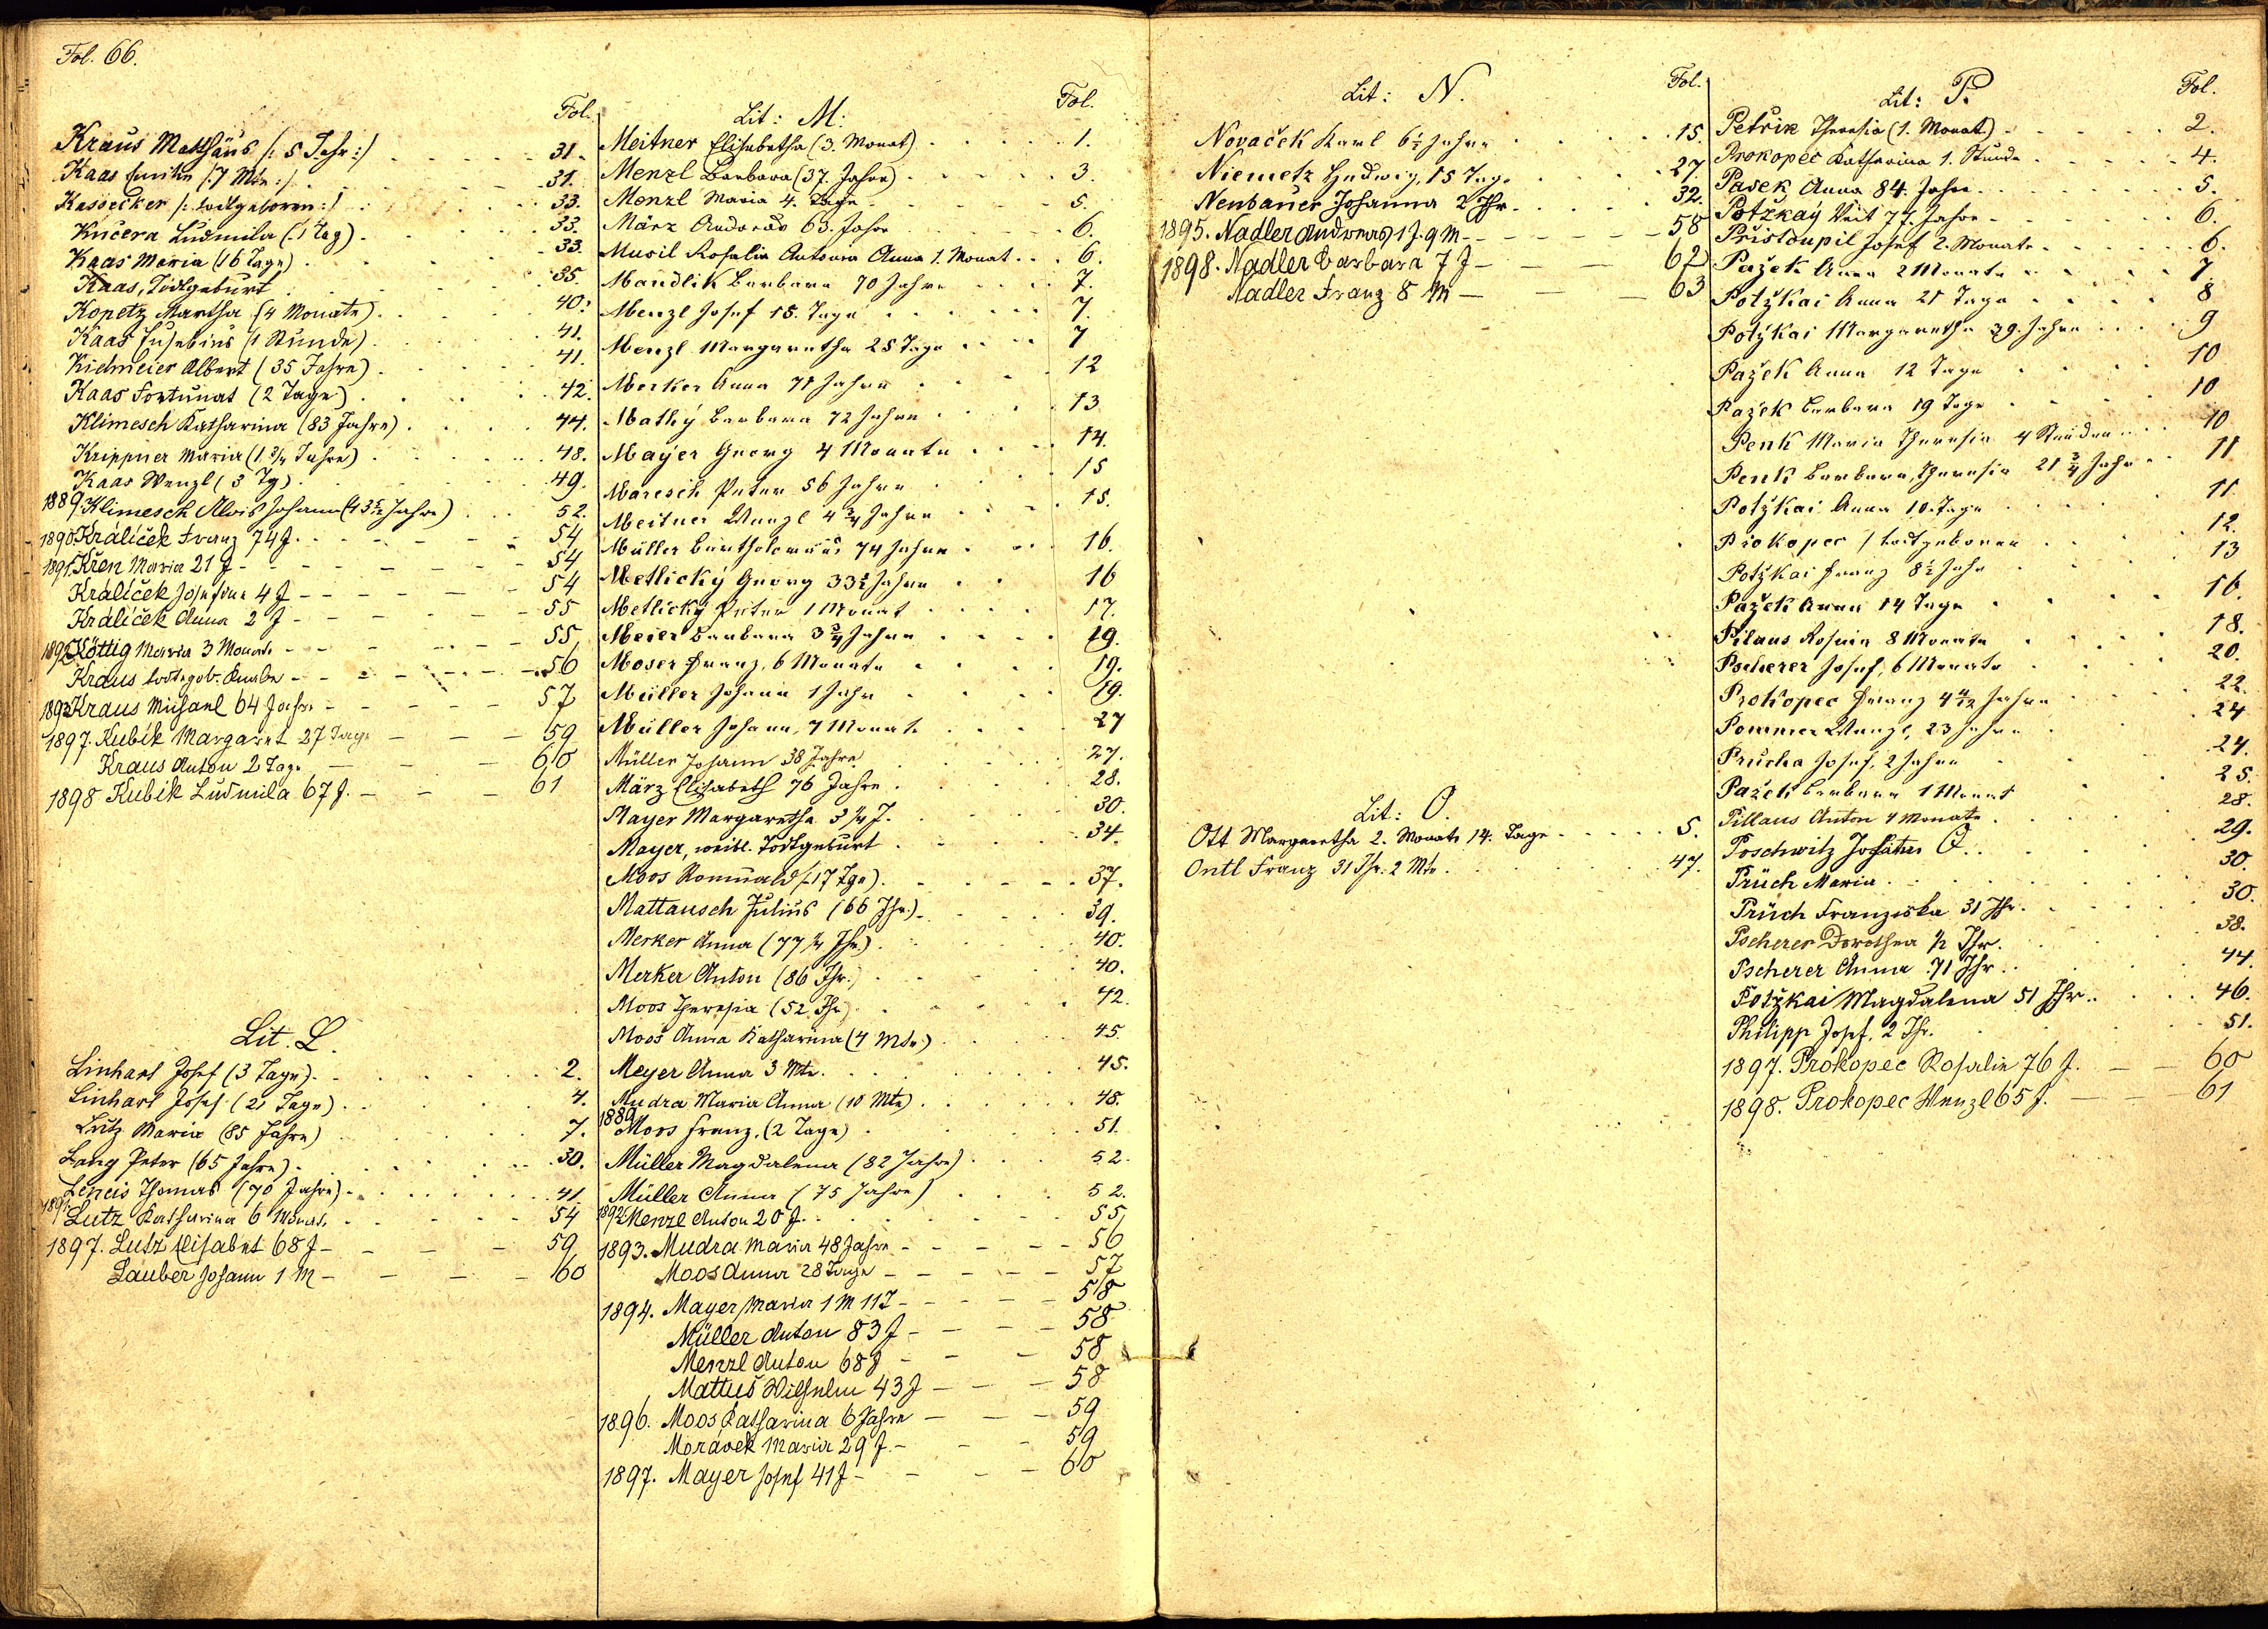 Fol. 66.
Fol.
Kraus Matthäus /: 5 Jahr :/ 31.
Kaas Emilie /: 7 Mte :/ 31.
Kassecker /: todtgeboren :/ 33.
Kučera Ludmila (1 Tag) 33.
Kaas Maria (16 Tage) 33.
Kaas, Todtgeburt 35.
Kopetz Martha (4 Monate) 40.
Kaas Eusebius (1 Stunde) 41.
Kichmeier Albert (35 Jahre) 41.
Kaas Fortunat (2 Tage) 42.
Klimesch Katharina (83 Jahre) 44.
Krippner Maria (1 3/4 Jahre) 48.
Kaas Wenzl (3 Tg) 49.
1889. Klimesch Alois Johann Jahre) 52.
1890. Králíček Franz 74 J. 54
1891. Křen Maria 21 J 54
Králíček Josefine 4 J 54
Králíček Anna 2 J 55
1892. Köttig Maria 3 Monate 55
Kraus todtgeb. Knabe 56
1893. Kraus Michael 64 Jahre 57
1897. Kubík Margaret 27 Tage 59
Kraus Anton 2 Tage 60
1898 Kubik Ludmila 67 J. 61
Lit. L.
Linhart Josef (3 Tage) 2.
Linhart Josef (21 Tage) 4.
Lutz Maria (85 Jahre) 7.
Lang Peter (65 Jahre) 30.
Leneis Thomas (70 Jahre) 41.
1891. Lutz Katharina 6 Monate 54
1897. Lutz Elisabet 68 J 59
Lauber Johann 1 M 60
Lit: M: Fol.
Meitner Elisabetha (3. Monat) 1.
Menzl Barbara (37. Jahre) 3.
Menzl Maria 4. Tage 5.
März Andreas 63. Jahre 6.
Musil Rosalia Antonia Anna 1. Monat 6.
Mandlik Barbara 70 Jahre 7.
Menzl Josef 15. Tage 7.
Menzl Margaretha 25 Tage 7
Merker Anna 71 Jahre 12
Mathý Barbara 72 Jahre 13
Mayer Georg 4 Monate 14.
Maresch Peter 56 Jahre 15
Meitner Wenzl 4 3/4 Jahre 15.
Müller Bartholomäus 74 Jahre 16.
Metlický Georg 33 1/2 Jahre 16
Metlický Peter 1 Monat 17.
Meier Barbara 3 3/4 Jahre 19.
Moser Franz, 6 Monate 19.
Müller Johann 1 Jahr 19.
Müller Johann, 7 Monate 27
Müller Johann 38 Jahre 27.
März Elisabeth 76 Jahre 28.
Mayer Margaretha 3 1/4 J. 30.
Mayer, weibl. Todtgeburt 34.
Moos Romuald (17 Tge) 37.
Mattausch Julius (66 Jhr.) 39.
Merker Anna (77 1/4 Jhr.) 40.
Merker Anton (86 Jhr.) 40.
Moos Theresia (52 Jhr) 42.
Moos Anna Katharina (4 Mte.) 45.
Meyer Anna 3 Mte. 45.
Mudra Maria Anna (10 Mte) 48.
1889 Moos Franz, (2 Tage) 51.
Müller Magdalena (82 Jahre) 52.
Müller Anna (75 Jahre) 52.
1892. Menzl Anton 20 J. 55
1893. Mudra Maria 48 Jahre 56
Moos Anna 28 Tage 57
1894. Mayer Maria 1 M 11 T 58
Müller Anton 83 J 58
Menzl Anton 68 J 58
Mattus Wilhelm 43 J 58
1896. Moos Katharina 6 Jahre 59
Morávek Maria 29 J. 59
1897. Mayer Josef 41 J 60
Lit: N. Fol.
Novaček Karl 6 1/2 Jahre 15.
Niemetz Hedwig, 15 Tage 27.
Neubauer Johanna 2 Jhr. 32.
1895. Nadler Andreas 1 J. 9 M 58
1898. Nadler Barbara 7 J 62
Nadler Franz 8 M 63
Lit: O.
Ott Margaretha 2. Monate 14. Tage 5.
Ontl Franz 31 Jhr. 2 Mte. 47.
Lit: P. Fol.
Petřik Theresia (1. Monat) 2.
Prokopec Katharina 1. Stunde 4.
Pasek Anna 84. Jahre 5.
Potžkay Veit 77. Jahre 6.
Přistoupil Josef 2. Monate 6.
Pažek Anna 2 Monate 7.
Potžkai Anna 21 Tage 8
Potžkai Margaretha 39. Jahre 9
Pažek Anna 12 Tage 10
Pažek Barbara 19 Tage 10
Penk Maria Theresia 4 Stunden 10
Penk Barbara, Theresia 21 3/4 Jahr 11
Potžkai Anna 10. Tage 11
Prokopec / todtgeboren 12.
Potžkai Franz 8 1/2 Jahr 13
Pažek Anna 14 Tage 16.
Pilaus Rosina 8 Monate 18.
Pscherer Josef, 6 Monate 20.
Prokopec Franz 4 Jahre 22.
Pommer Wenzl, 23 Jahre 24
Prucha Josef, 2 Jahre 24.
Pažek Barbara 1 Monat 25.
Pillaus Anton 4 Monate 28.
Poschwitz 29.
Prüch Maria 30.
Prüch Franziska 31 Jhr. 30.
Pscherer Dorothea 1/2 Jhr. 38.
Pscherer Anna 71 Jhr. 44.
Potžkai Magdalena 51 Jhr. 46.
Philipp Josef, 2 Jhr. 51.
1897. Prokopec Rosalie 76 J. 60
1898. Prokopec Wenzl 65 J. 61